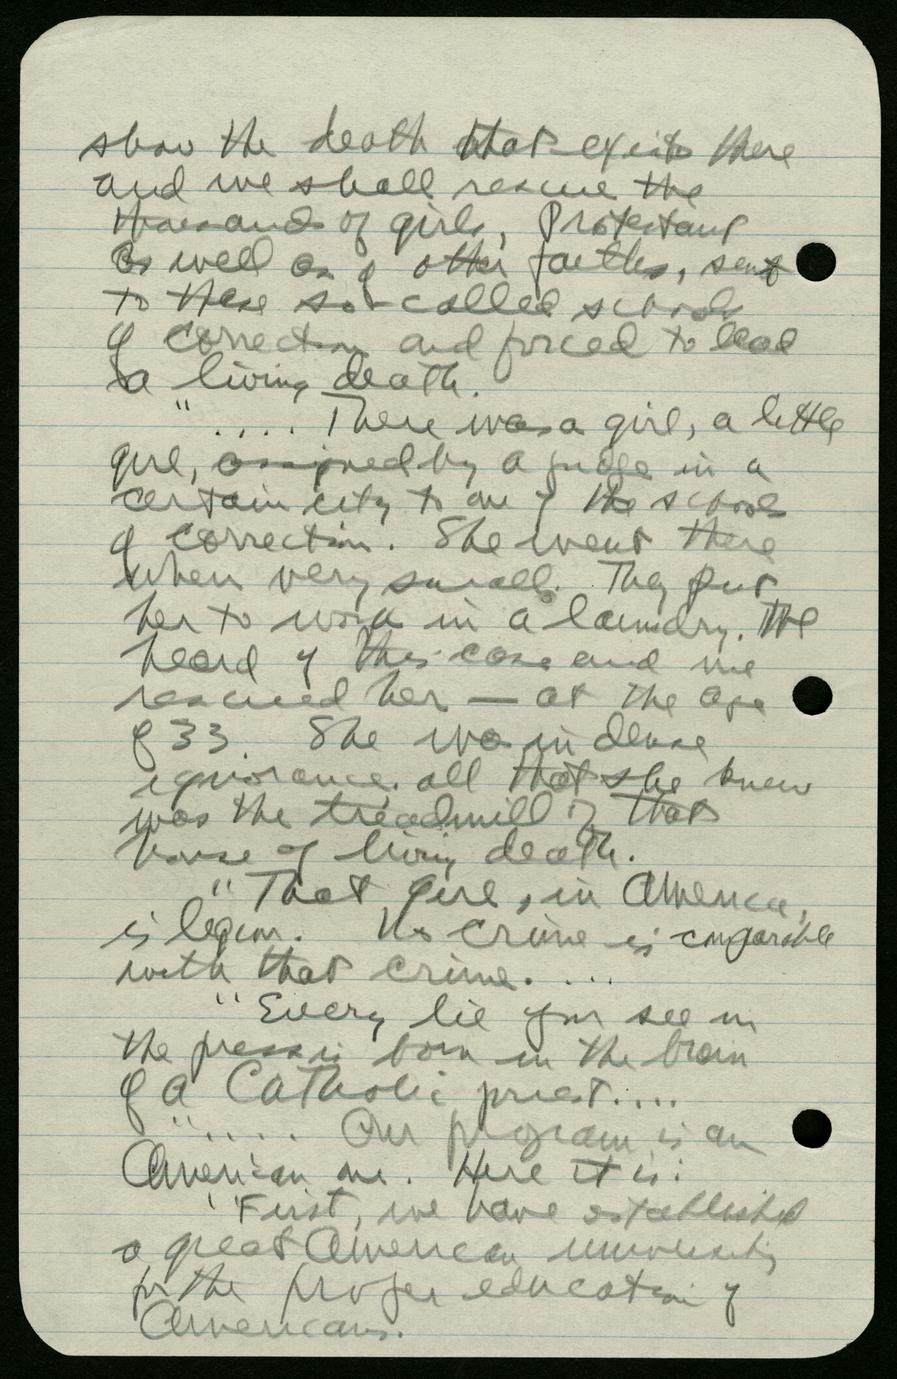 show the death that exists there
and we shall rescue the
thousands of girls, Protestant
as well as of other faiths, sent
to these so-called schools
of correction and forced to lead
a "living death.
".... There was a girl, a little
girl, assigned by a judge in a
certain city to one of the schools
of correction. She went there
when very small. They put
her to work in a laundry. We
heard of this case and we
rescued her — at the age
of 33. She was in dense
ignorance. all that she knew
was the treadmill of that
house of living death.
"That girl, in America,
is legion. No crime is comparable
with that crime. ....
"Every lie you see in
the press is born in the brain
of a Catholic priest....
"..... Our program is an
American one. Here it is:
"First, we have established
a great American university
for the proper education of
Americans.